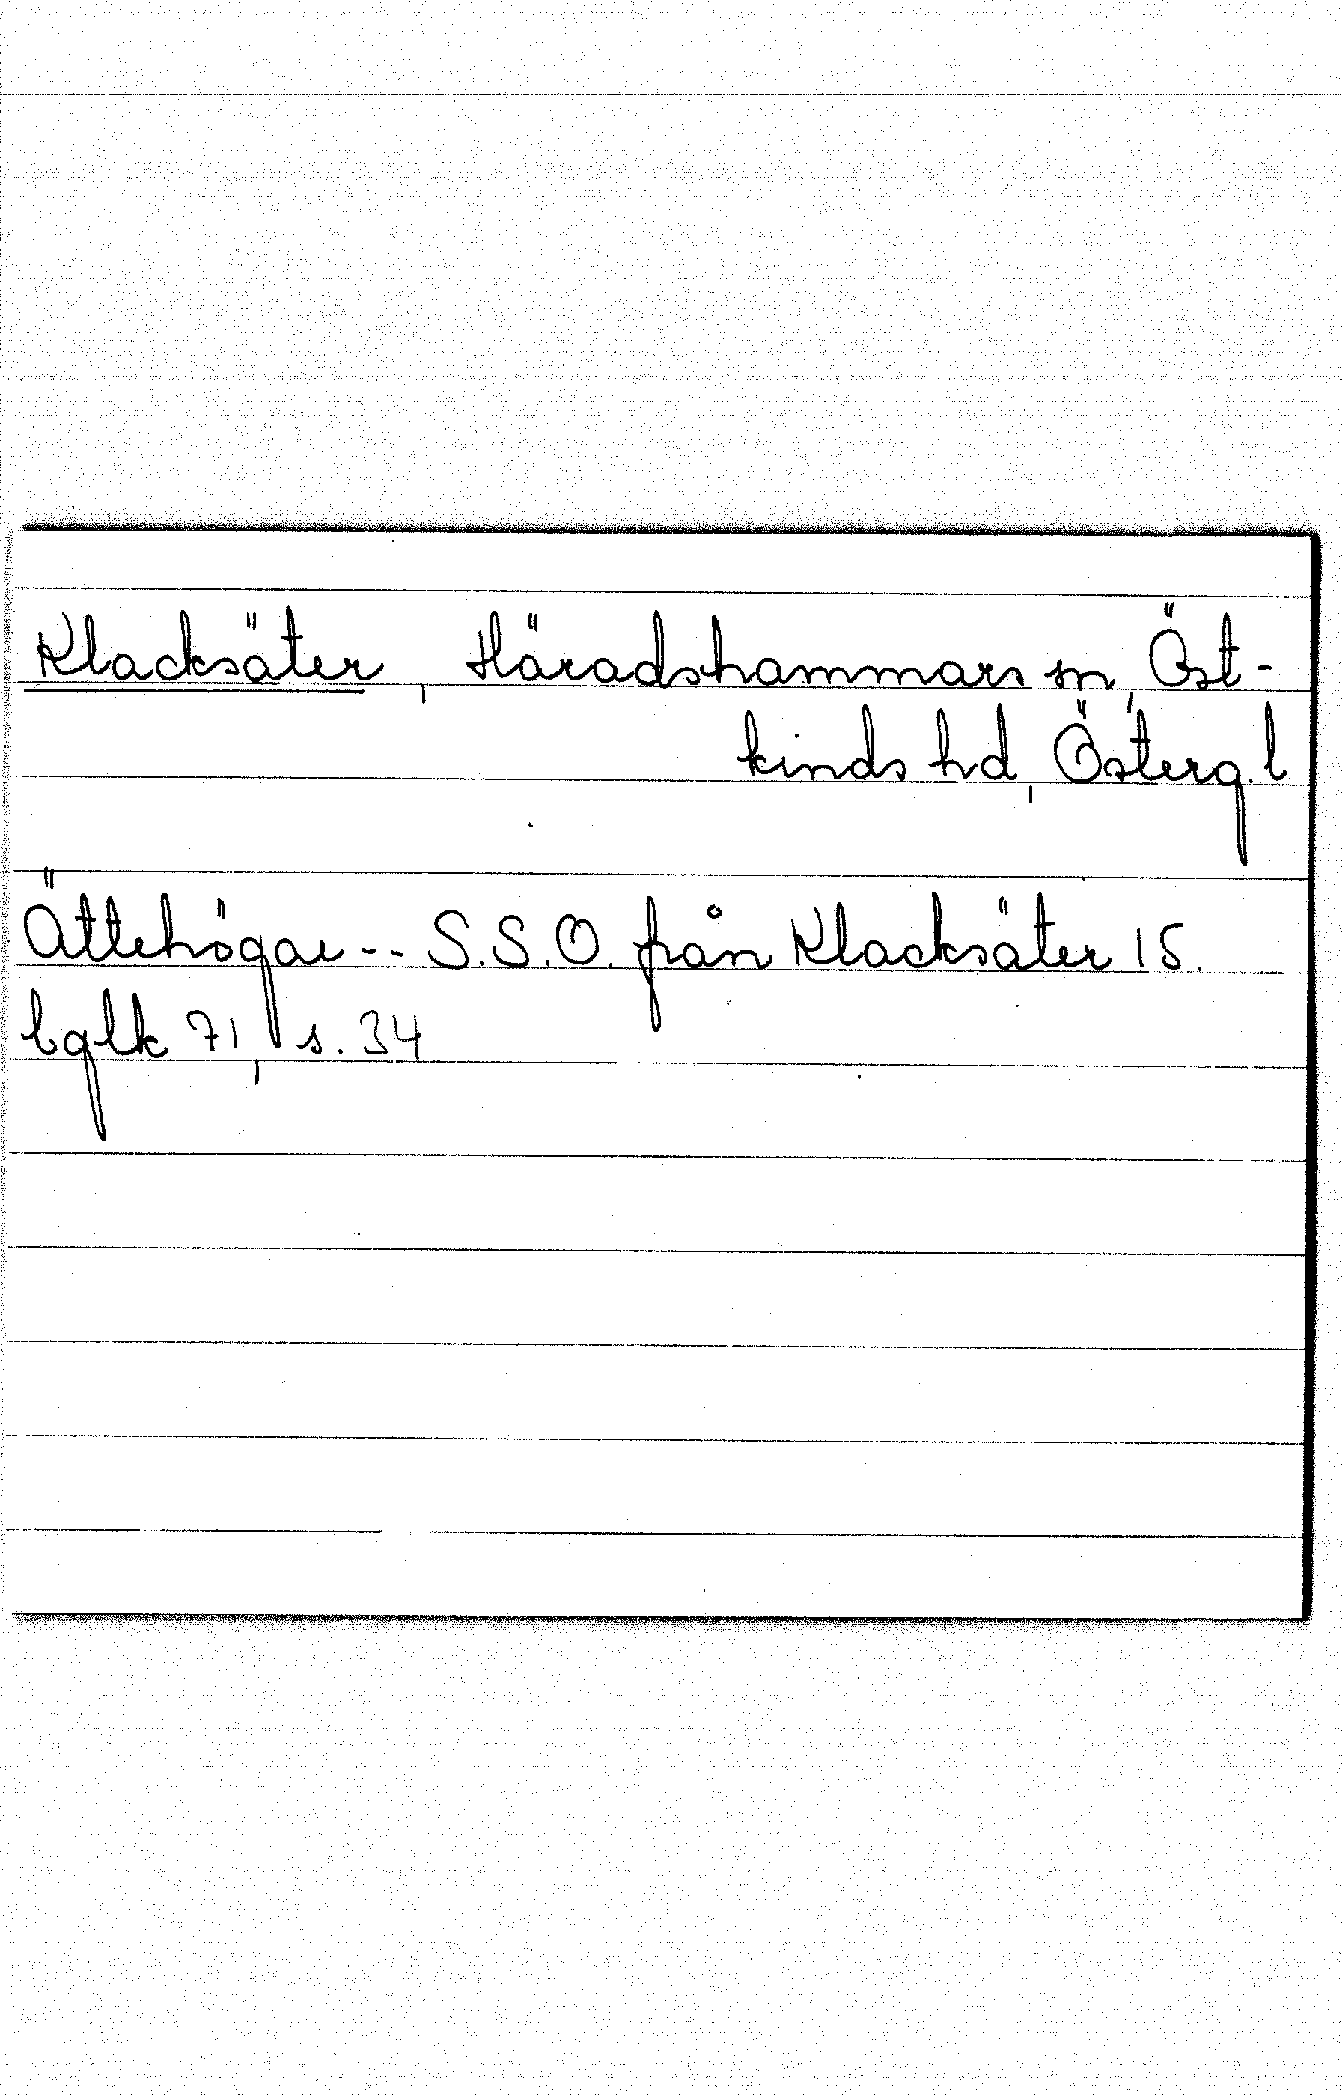 Klacksäter, Häradshammars sn, Öst-
kinds hd, Österg. l
Ättehögar -- S.S.O. från Klacksäter 15.
bglk 71, s. 34